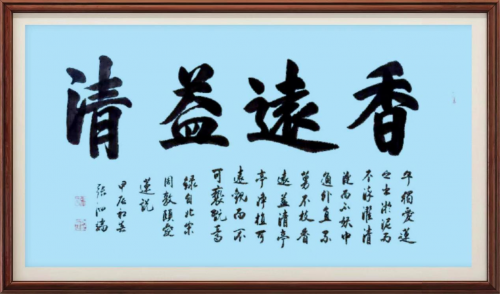 香遠益清
予獨愛蓮
之出淤泥而
不染濯清
漣而不妖中
通外直不
蔓不枝香
遠益清亭
亭净植可
遠觀而不
可褻翫焉
録自北宋
周敦頤愛
蓮説
甲辰初